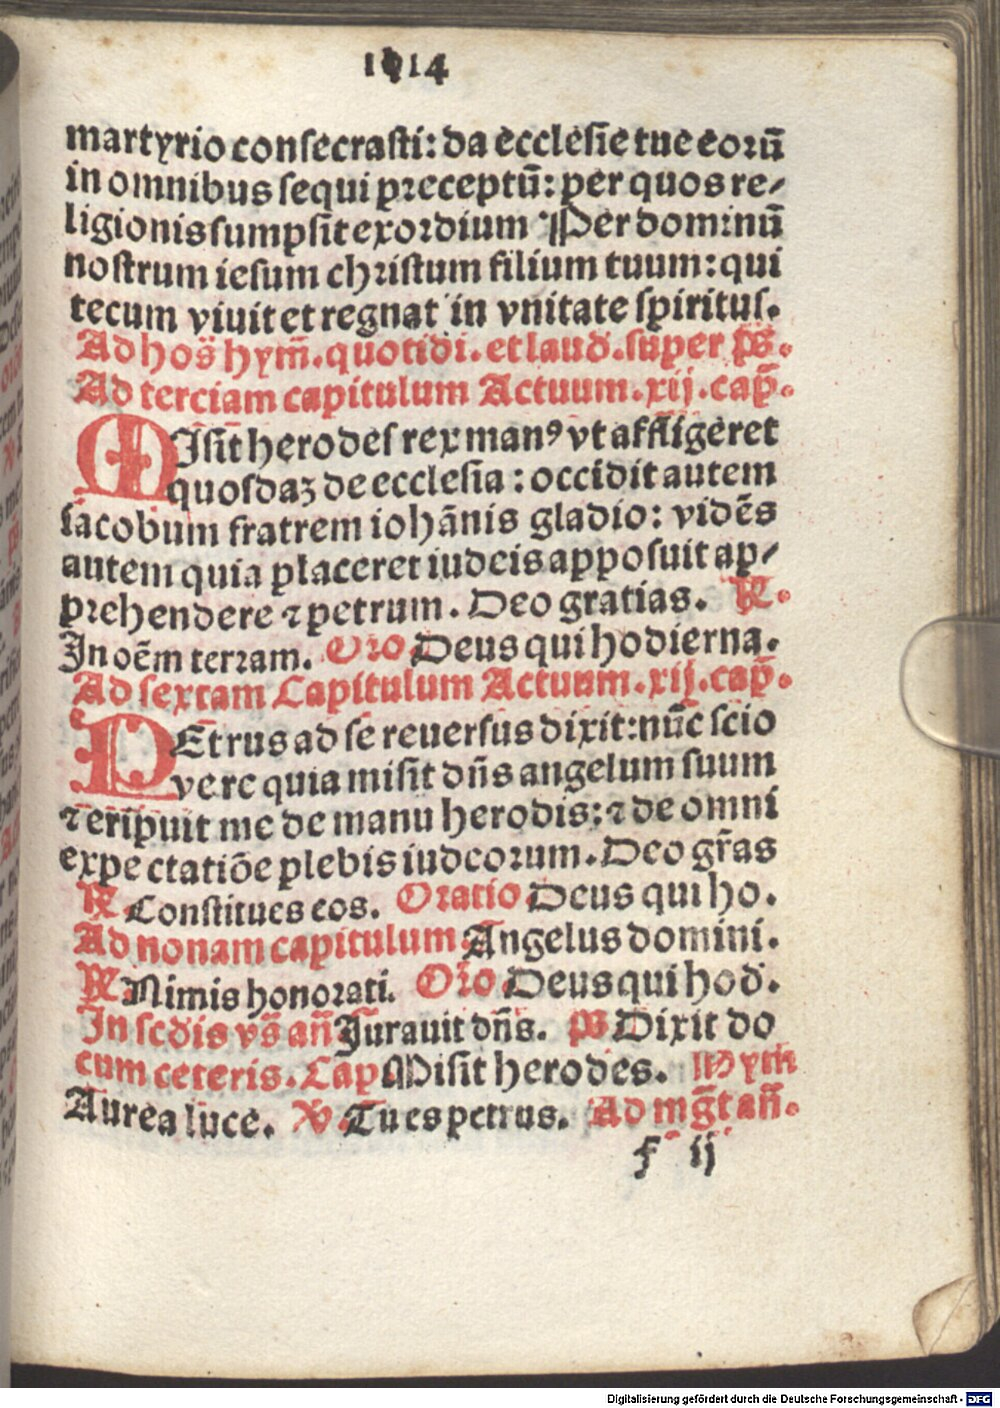 1914
martyrio consecrasti: da ecclesie tue eorū
in omnibus sequi preceptū: per quos re-
ligionis sumpsit exordium ¶ Per dominū
nostrum iesum christum filium tuum: qui
tecum viuit et regnat in vnitate spiritus.
Ad hos hym̄. quotidi. et laud. super ps.
Ad terciam capitulum Actuum. xij. cap̄.
MIsit herodes rex manꝰ vt affligeret
quosdaꝫ de ecclesia: occidit autem
iacobum fratrem iohānis gladio: vidēs
autem quia placeret iudeis apposuit ap-
prehendere ⁊ petrum. Deo gratias. ℟.
In oēm terram. Oro. Deus qui hodierna.
Ad sextam Capitulum Actuum. xij. cap̄.
PEtrus ad se reuersus dixit: nūc scio
vere quia misit dn̄s angelum suum
⁊ eripuit me de manu herodis: ⁊ de omni
expectatiōe plebis iudeorum. Deo gr̄as
℟. Constitues eos. Oratio. Deus qui ho.
Ad nonam capitulum. Angelus domini.
℟. Nimis honorati. Oro. Deus qui hod.
In scdis vs an̄ Jurauit dn̄s. ps Dixit do
cum ceteris. Cap Misit herodes. Hym
Aurea luce. ℣. Tu es petrus. Ad mḡt an̄.
f ij
Digitalisierung gefördert durch die Deutsche Forschungsgemeinschaft - DFG